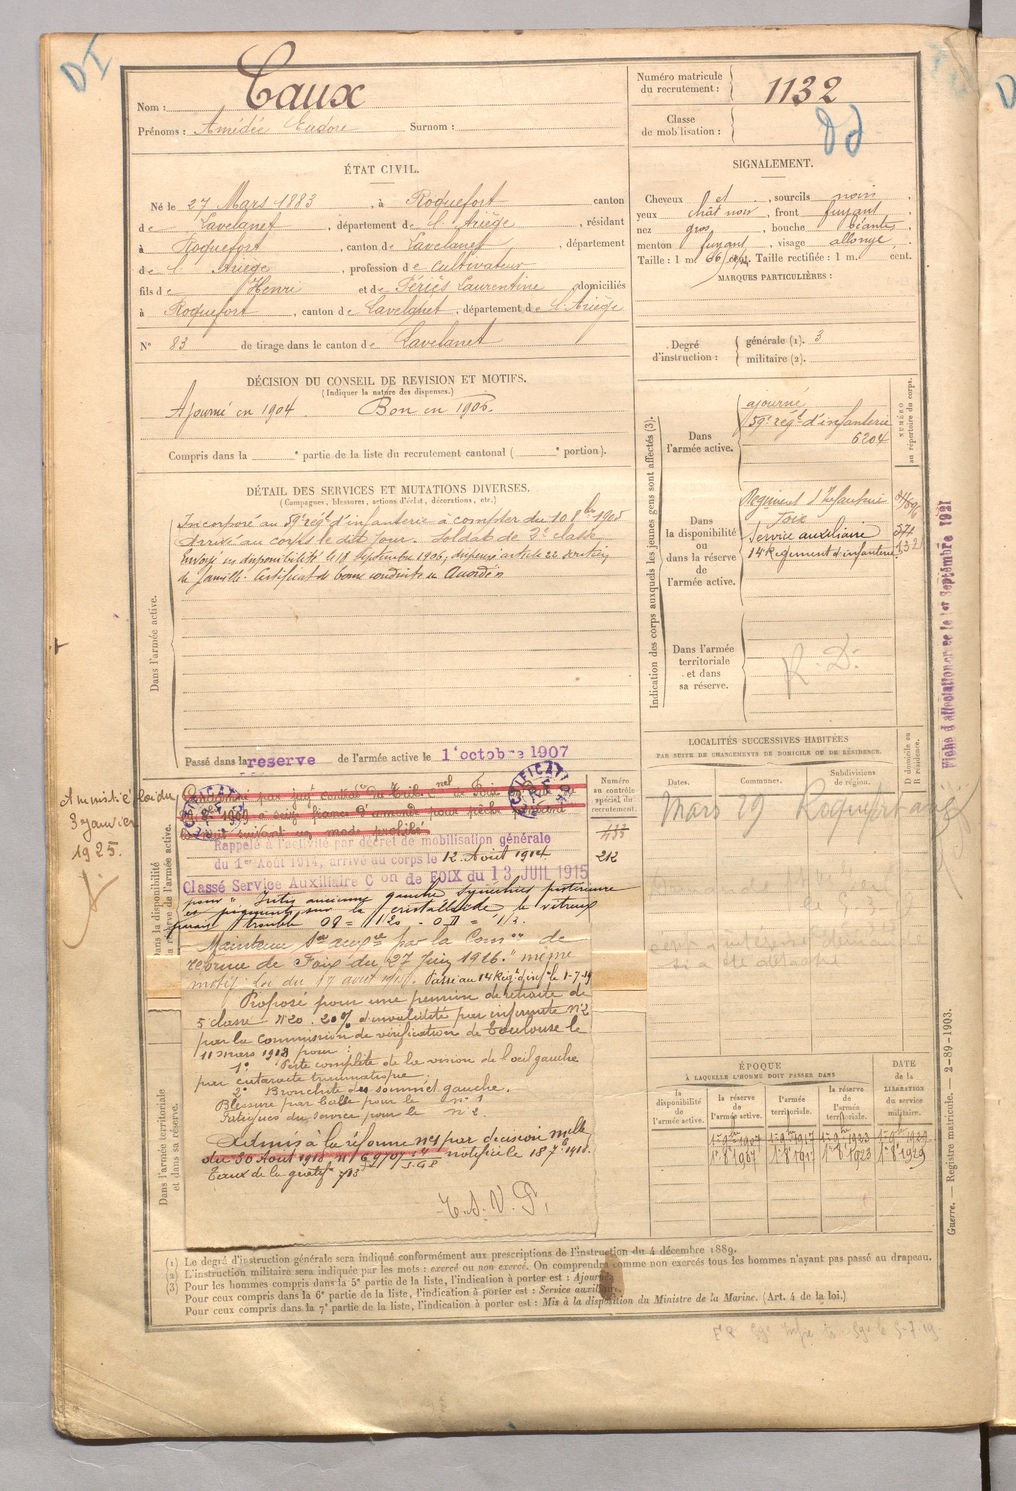 DI
Nom : Caux
Prénoms : Amédée Eudore Surnom :
Numéro matricule du recrutement : 1132
Classe de mobilisation :
ÉTAT CIVIL.
Né le 27 Mars 1883, à Roquefort canton
de Lavelanet, département de l'Ariège, résidant
à Roquefort, canton de Lavelanet, département
de l'Ariège, profession de cultivateur
fils de Henri et de Fériés Laurentine domiciliés
à Roquefort, canton de Lavelanet, département de l'Ariège
N° 83 de tirage dans le canton de Lavelanet
SIGNALEMENT.
Cheveux, sourcils noirs,
yeux chât noir, front fuyant
nez gros, bouche béante,
menton fuyant, visage allongé,
Taille : 1 m. 66 cent. Taille rectifiée : 1 m. cent.
MARQUES PARTICULIÈRES :
Degré d'instruction :
générale (1). 3
militaire (2).
DÉCISION DU CONSEIL DE REVISION ET MOTIFS.
(Indiquer la nature des dispenses.)
Ajourné en 1904 Bon en 1905.
Compris dans la ° partie de la liste du recrutement cantonal ( ° portion).
DÉTAIL DES SERVICES ET MUTATIONS DIVERSES.
(Campagnes, blessures, actions d'éclat, décorations, etc.)
Dans l'armée active.
Incorporé au 59e régt d'infanterie à compter du 10 8bre 1905
Arrivé au corps le dit jour. Soldat de 2e classe
Envoyé en disponibilité le 18 Septembre 1906, dispensé article 22 soutien
de famille. Certificat de bonne conduite "Accordé"
Passé dans la reserve de l'armée active le 1 octobre 1907
Indication des corps auxquels les jeunes gens sont affectés (3).
NUMÉRO au répertoire du corps.
Dans l'armée active.
ajourné
59e régt d'infanterie
6204
Dans la disponibilité ou dans la réserve de l'armée active.
Régiment d'Infanterie
Foix
Service auxiliaire
14 Régiment d'infanterie
Dans l'armée territoriale et dans sa réserve.
R. D.
Fiche d'affectation créée le 1er Septembre 1921
Amnistié loi du
3 janvier
1925.
Dans la disponibilité
la réserve de l'armée active.
Numéro au contrôle spécial du recrutement.
433
212
Rappelé à l'activité par décret de mobilisation générale
du 1er Août 1914, arrivé au corps le 12 Août 1914
Classé Service Auxiliaire Con de FOIX du 13 JUIL 1915
pour " Iritis ancienne gauche synéchies postérieure
et pigments sur la cristalloïde le vitreux
parait trouble OG = 1/20 - OD = 1/3.
Maintenu Sce auxre par la Comon de
réforme de Foix du 27 Juin 1916. " même
motif. Loi du 17 août 1915. Passé au 14 Régt d'infie le 1-7-19
Proposé pour une pension de retraite de
5 classe N° 20. 20% d'invalidité par infirmité n° 2
par la commission de vérification de Toulouse le
11 mars 1918 pour :
1° Perte complète de la vision de l'oeil gauche
par cataracte traumatique.
2° Bronchite des sommet gauche.
Blessure par balle pour le n° 1
Fatigues du service pour le n° 2
Admis à la réforme n° 1 par décision mlle
du 30 Août 1918 notifié le 18 7bre 1918.
Taux de la gratifn
T. S. V. P.
Dans l'armée territoriale et dans sa réserve.
LOCALITÉS SUCCESSIVES HABITÉES
PAR SUITE DE CHANGEMENTS DE DOMICILE OU DE RÉSIDENCE.
Dates. Communes. Subdivisions de région. D domicile ou R résidence.
Mars 19 Roquefort
ÉPOQUE
À LAQUELLE L'HOMME DOIT PASSER DANS
la disponibilité de l'armée active. la réserve de l'armée active. l'armée territoriale. la réserve de l'armée territoriale.
DATE de la LIBÉRATION du service militaire.
1er 9bre 1907 1er 9bre 1917 1er 9bre 1923 1er 9bre 1929
1er 8bre 1907 1er 8bre 1917 1er 8bre 1923 1er 8bre 1929
(1) Le degré d'instruction générale sera indiqué conformément aux prescriptions de l'instruction du 4 décembre 1889.
(2) L'instruction militaire sera indiquée par les mots : exercé ou non exercé. On comprendra comme non exercés tous les hommes n'ayant pas passé au drapeau.
(3) Pour les hommes compris dans la 5e partie de la liste, l'indication à porter est : Ajourné
Pour ceux compris dans la 6e partie de la liste, l'indication à porter est : Service auxiliaire.
Pour ceux compris dans la 7e partie de la liste, l'indication à porter est : Mis à la disposition du Ministre de la Marine. (Art. 4 de la loi.)
Guerre. — Registre matricule. — 2-89-1903.